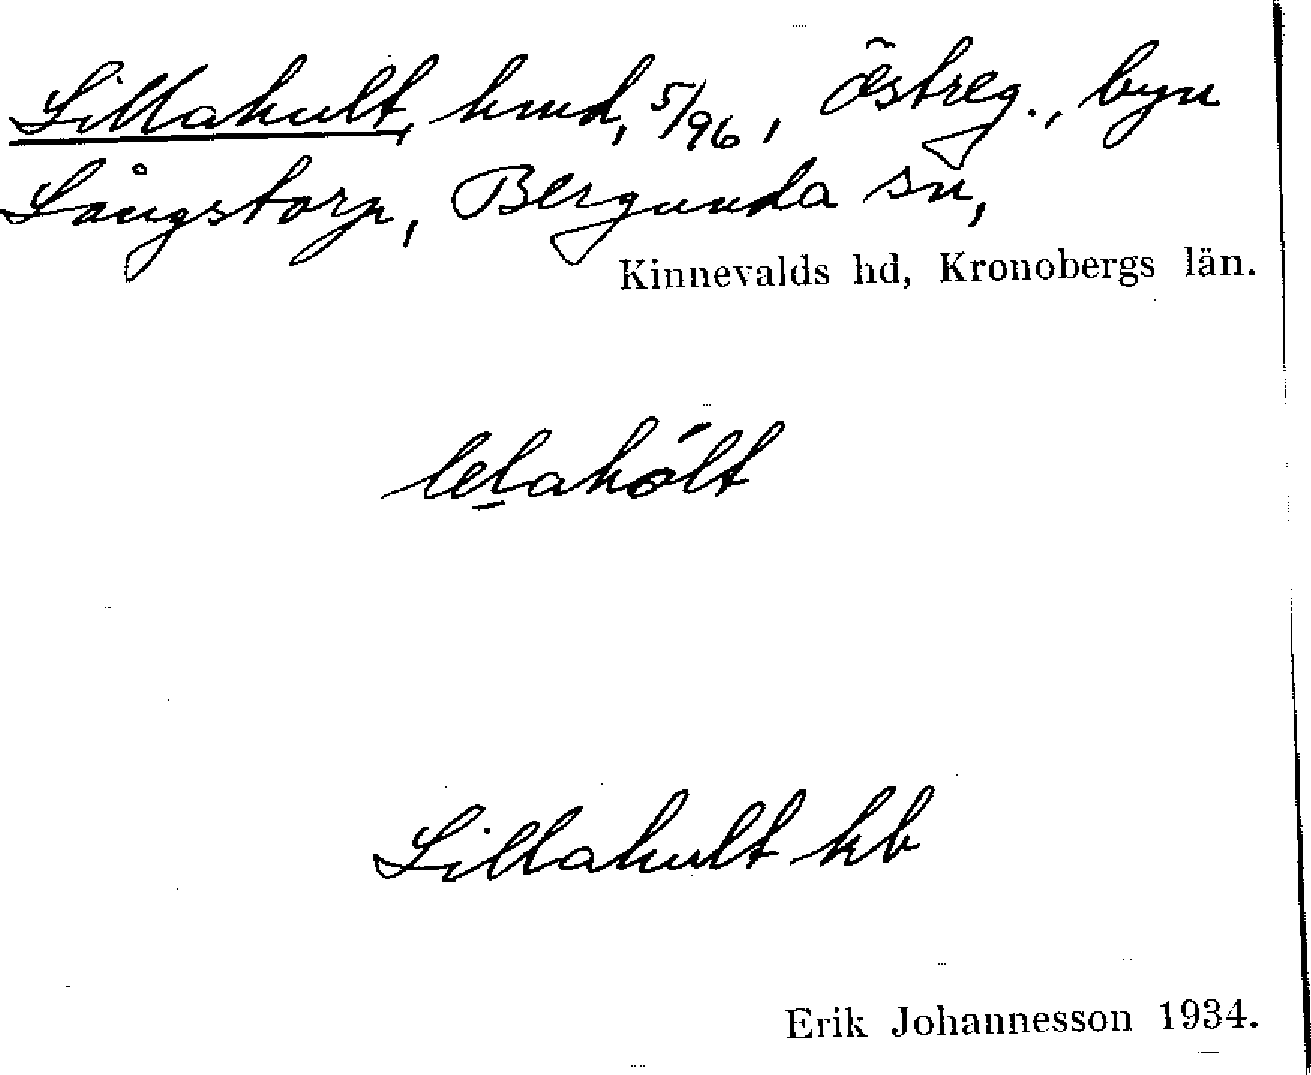 Lillahult, hmd, 5/96, östreg., byn
Långstorp, Bergunda sn,
Kinnevalds hd, Kronobergs län.
lelahólt
Lillahult kb
Erik Johannesson 1934.